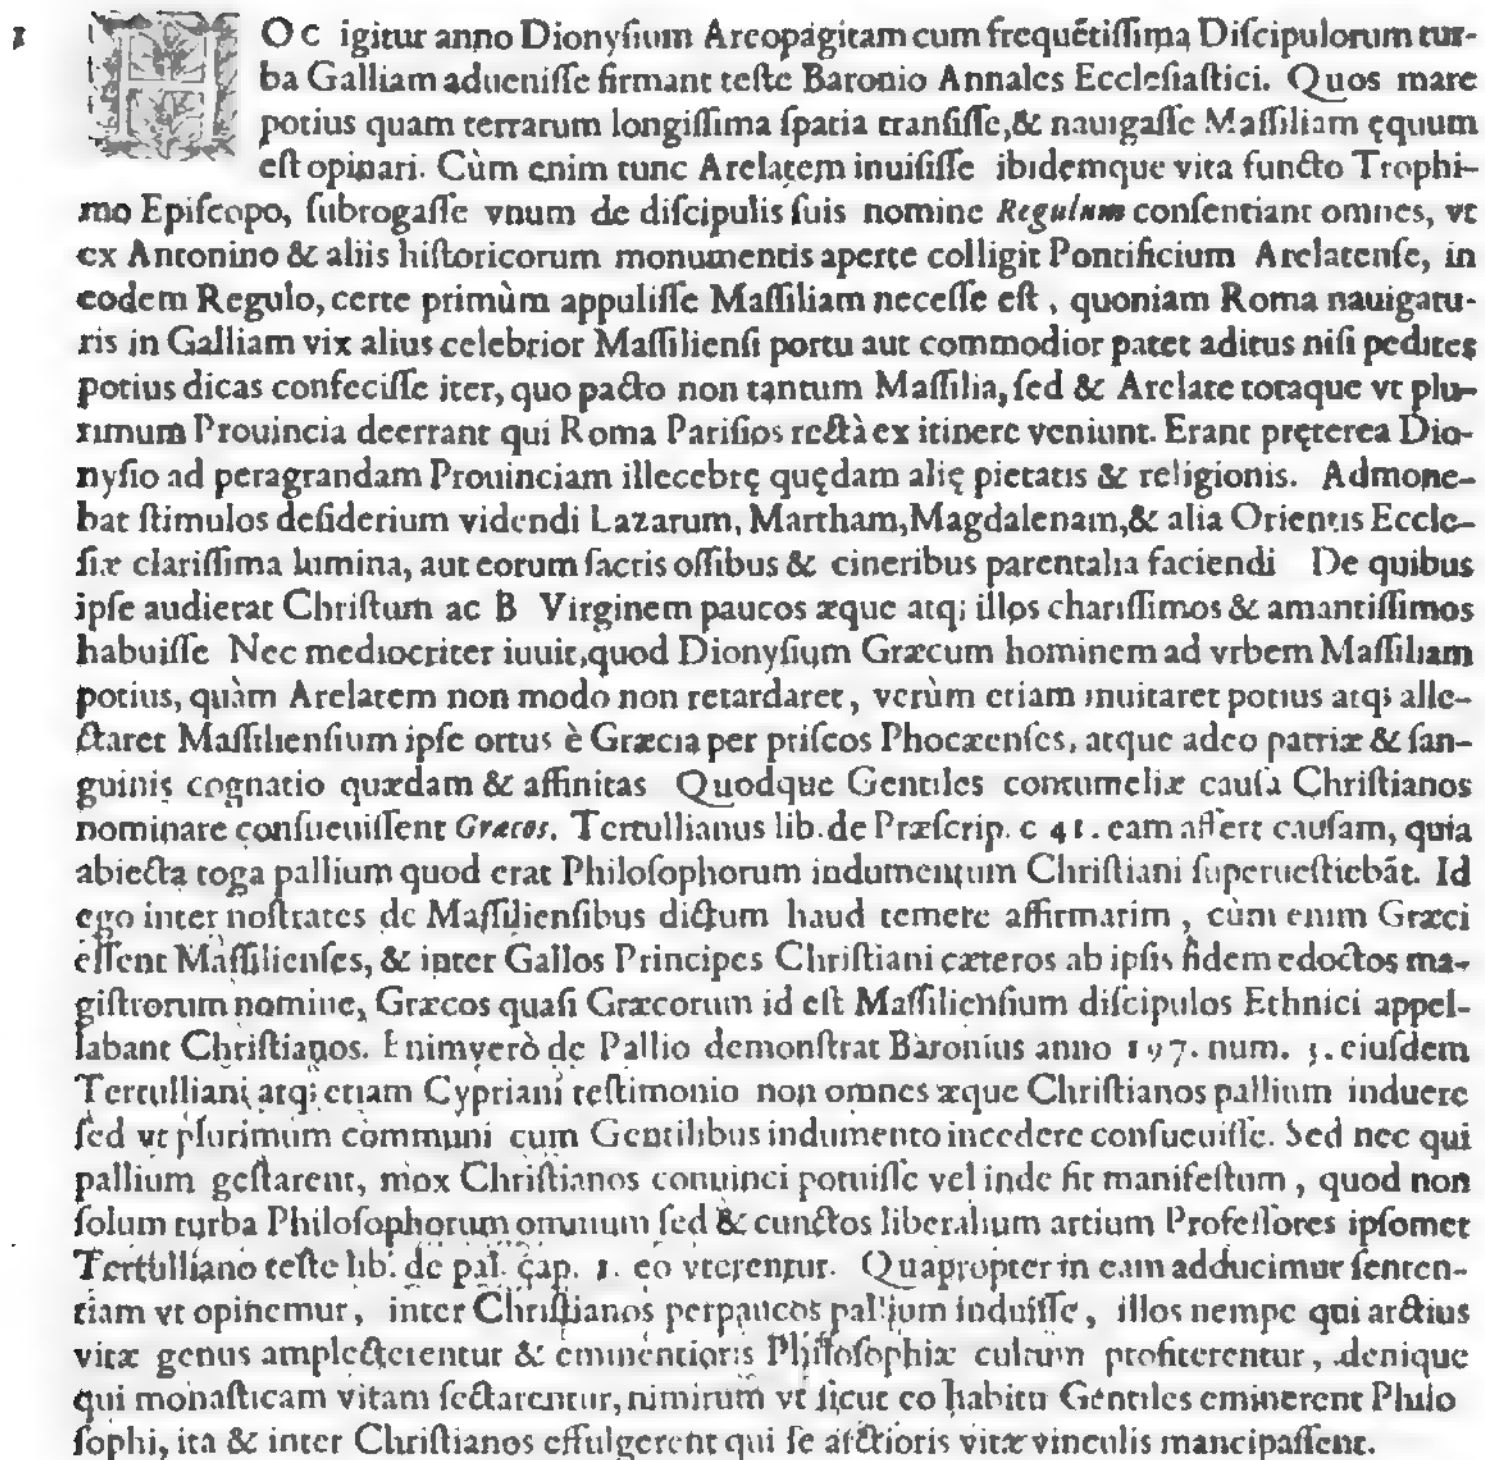 1 HOC igitur anno Dionyſium Areopagitam cum frequẽtiſſima Diſcipulorum tur-
ba Galliam adueniſſe firmant teſte Baronio Annales Eccleſiaſtici. Quos mare
potius quam terrarum longiſſima ſpatia tranſiſſe,& nauigaſſe Maſſiliam ęquum
eſt opinari. Cùm enim tunc Arelatem inuiſiſſe ibidemque vita functo Trophi-
mo Epiſcopo, ſubrogaſſe vnum de diſcipulis ſuis nomine Regulum conſentiant omnes, vt
ex Antonino & aliis hiſtoricorum monumentis aperte colligit Pontificium Arelatenſe, in
eodem Regulo, certe primùm appuliſſe Maſſiliam neceſſe eſt, quoniam Roma nauigatu-
ris in Galliam vix alius celebrior Maſſilienſi portu aut commodior patet aditus niſi pedites
potius dicas confeciſſe iter, quo pacto non tantum Maſſilia, ſed & Arelate totaque vt plu-
rimum Prouincia deerrant qui Roma Pariſios rectà ex itinere veniunt. Erant pręterea Dio-
nyſio ad peragrandam Prouinciam illecebrę quędam alię pietatis & religionis. Admone-
bat ſtimulos deſiderium videndi Lazarum, Martham,Magdalenam,& alia Orientis Eccle-
ſiæ clariſſima lumina, aut eorum ſacris oſſibus & cineribus parentalia faciendi De quibus
ipſe audierat Chriſtum ac B Virginem paucos æque atq; illos chariſſimos & amantiſſimos
habuiſſe Nec mediocriter iuuit,quod Dionyſium Græcum hominem ad vrbem Maſſiliam
potius, quàm Arelatem non modo non retardaret, verùm etiam inuitaret potius atq; alle-
ctaret Maſſilienſium ipſe ortus è Græcia per priſcos Phocæenſes, atque adeo patriæ & ſan-
guinis cognatio quædam & affinitas Quodque Gentiles contumeliæ cauſà Chriſtianos
nominare conſueuiſſent Græcos. Tertullianus lib. de Præſcrip. c 41. eam affert cauſam, quia
abiecta toga pallium quod erat Philoſophorum indumentum Chriſtiani ſuperueſtiebãt. Id
ego inter noſtrates de Maſſilienſibus dictum haud temere affirmarim, cùm enim Græci
eſſent Maſſilienſes, & inter Gallos Principes Chriſtiani cæteros ab ipſis fidem edoctos ma-
giſtrorum nomine, Græcos quaſi Græcorum id eſt Maſſilienſium diſcipulos Ethnici appel-
labant Chriſtianos. Enimverò de Pallio demonſtrat Baronius anno 197. num. 3. eiuſdem
Tertulliani atq; etiam Cypriani teſtimonio non omnes æque Chriſtianos pallium induere
ſed vt plurimum communi cum Gentilibus indumento incedere conſueuiſſe. Sed nec qui
pallium geſtarent, mox Chriſtianos conuinci potuiſſe vel inde fit manifeſtum, quod non
ſolum turba Philoſophorum omnium ſed & cunctos liberalium artium Profeſſores ipſomet
Tertulliano teſte lib. de pal. cap. 1. eo vterentur. Quapropter in eam adducimur ſenten-
tiam vt opinemur, inter Chriſtianos perpaucos pallium induiſſe, illos nempe qui arctius
vitæ genus amplecterentur & eminentioris Philoſophiæ cultum profiterentur, denique
qui monaſticam vitam ſectarentur, nimirum vt ſicut eo habitu Gentiles eminerent Philo
ſophi, ita & inter Chriſtianos effulgerent qui ſe arctioris vitæ vinculis mancipaſſent.